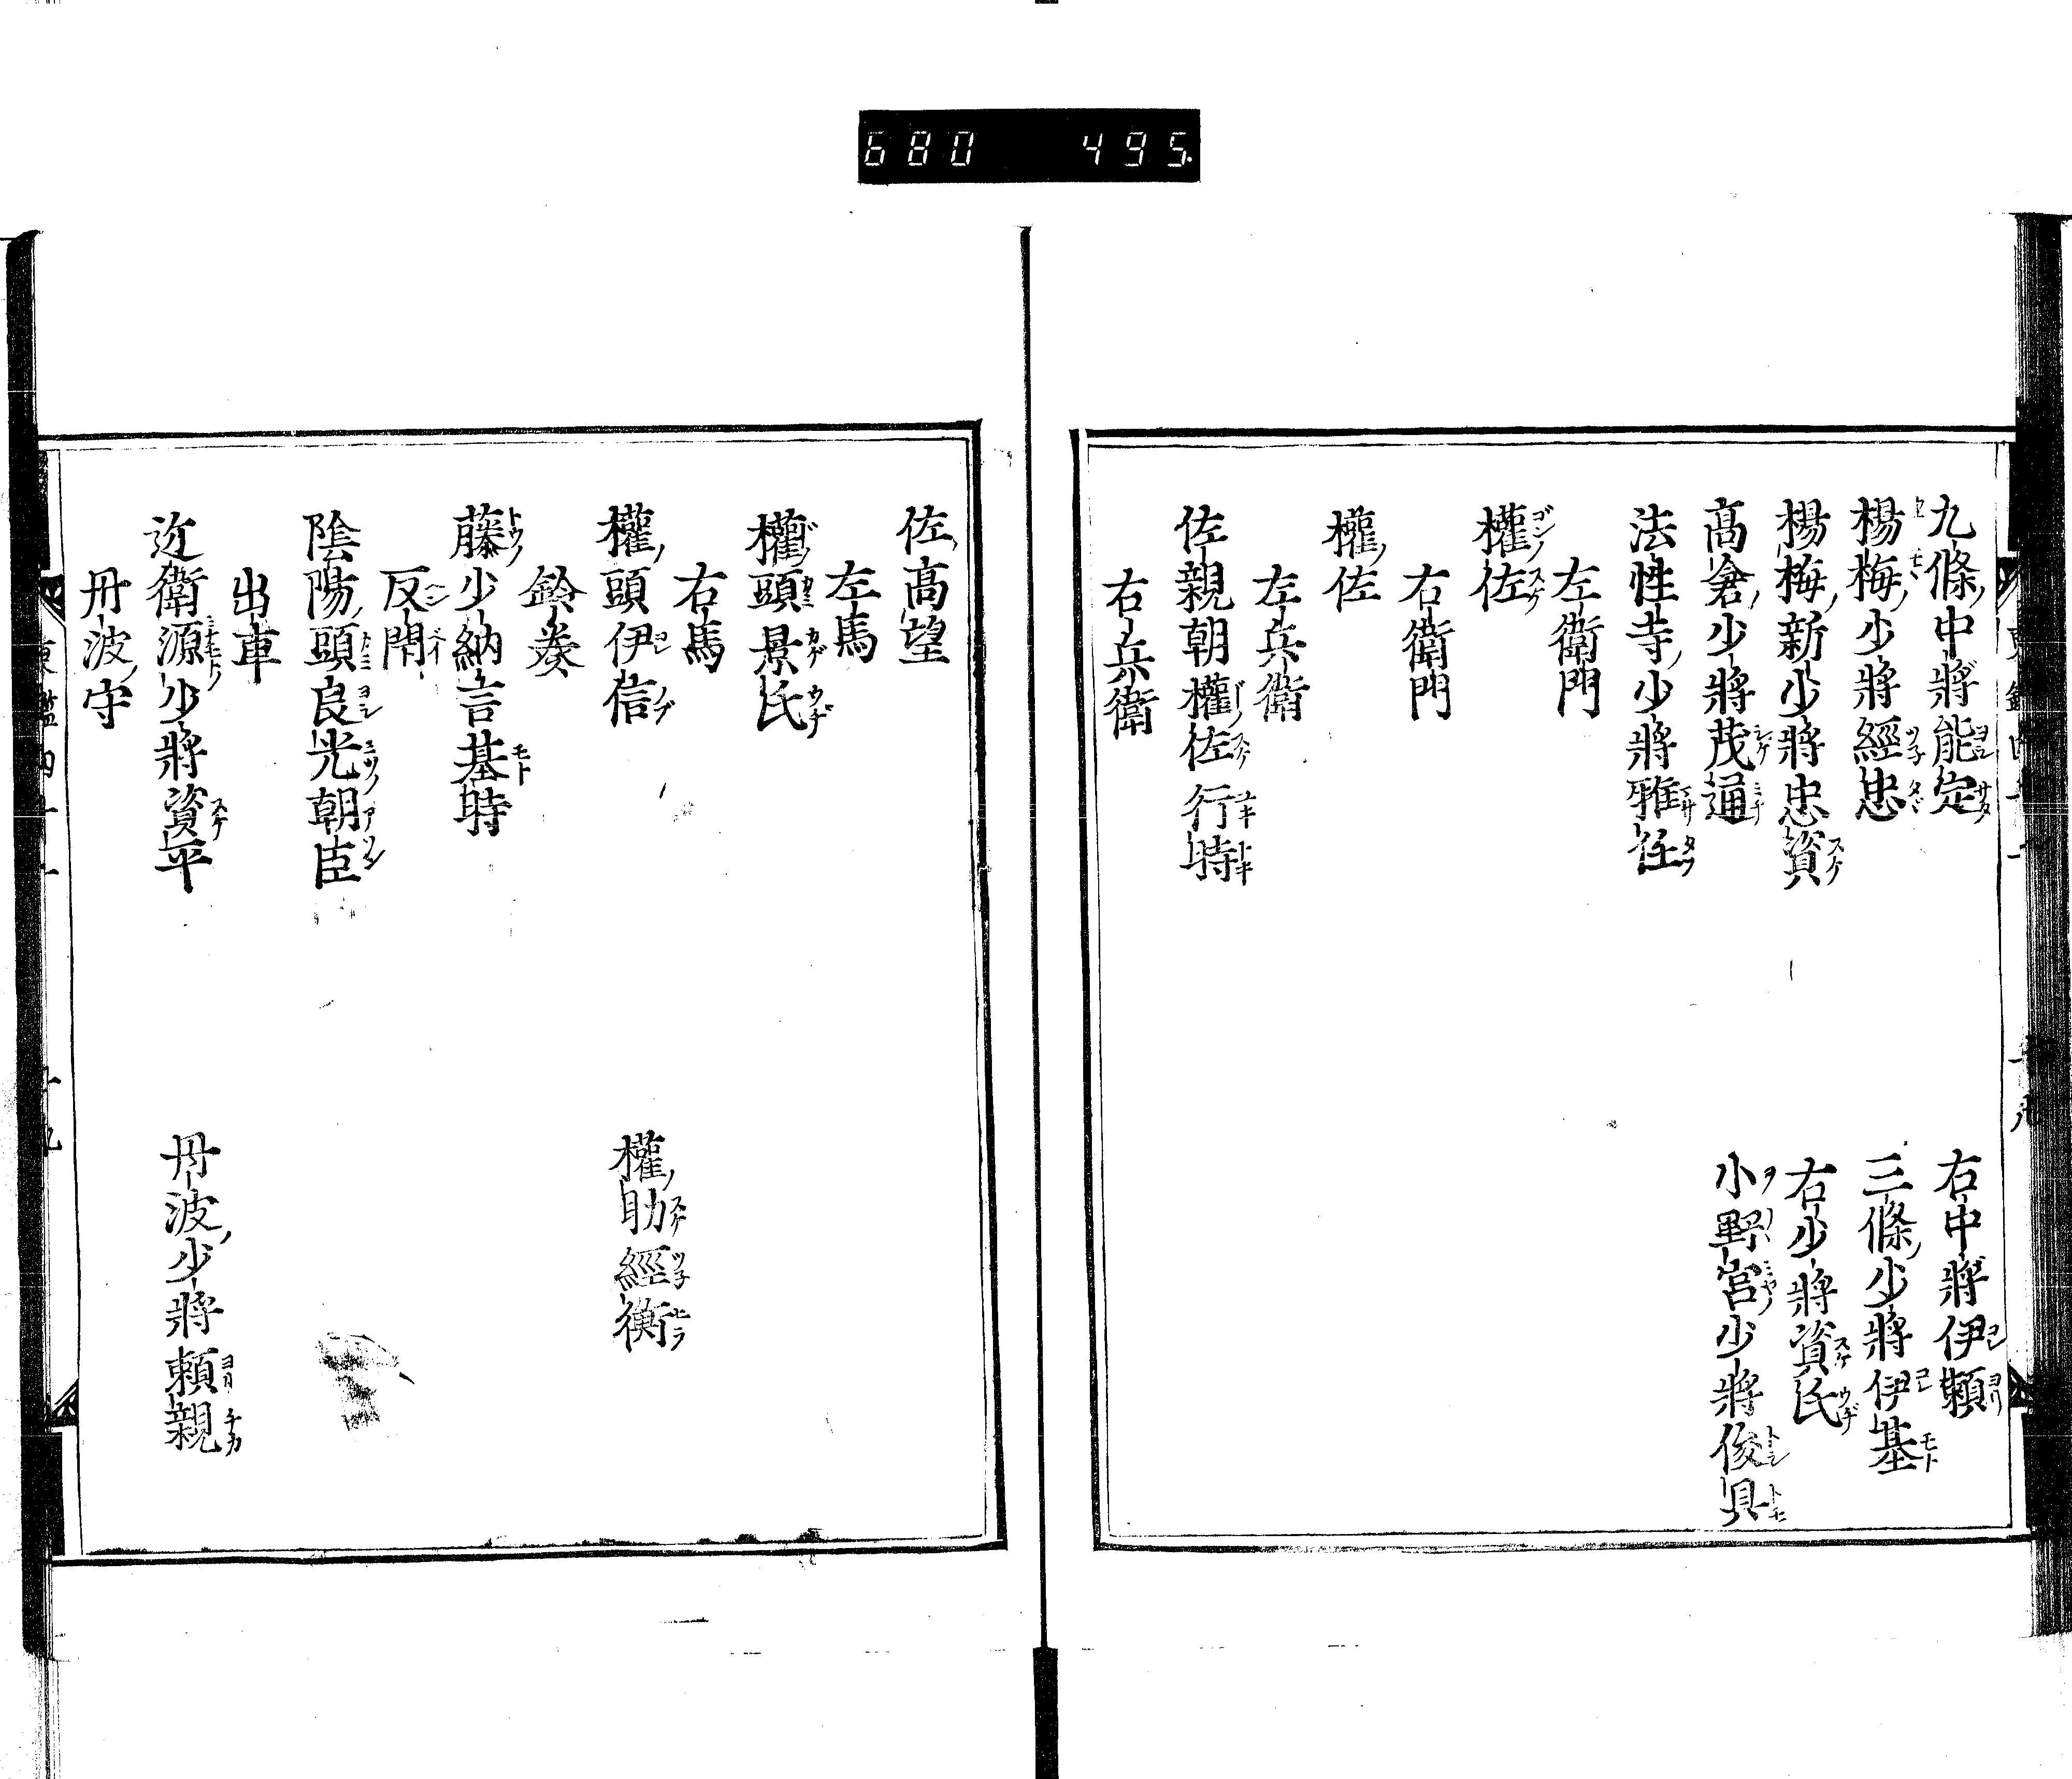 680 495
九條ノ中將能定
右中將伊頼
楊梅ノ少將經忠
三條ノ少將伊基
楊梅ノ新少將忠資
右少將資氏
髙倉ノ少將茂通
小野宮少將俊具
法性寺ノ少將雅任
左衛門
權ノ佐
右衛門
權ノ佐
左兵衛
佐親朝權佐行時
右兵衛
佐髙望
左馬
權頭景氏
右馬
權ノ頭伊信
權ノ助經衡
鈴奏
藤少納言基時
反閇
陰陽ノ頭良光朝臣
出車
近衛源少將資平
丹波ノ少將頼親
丹波ノ守